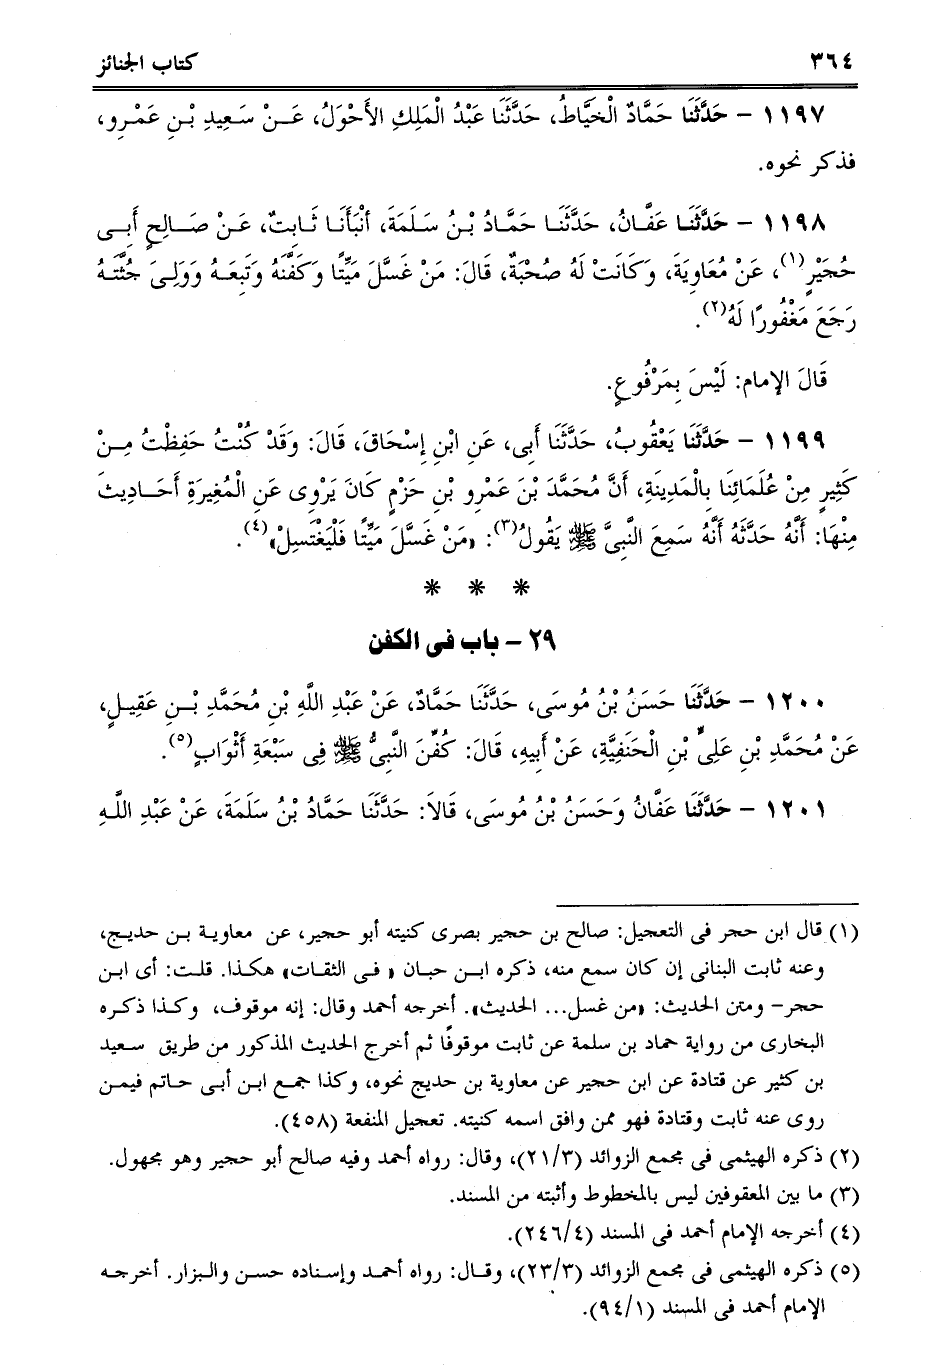 ٣٦٤ كتاب الجنائز
١١٩٧ - حَدَّثَنَا حَمَّادٌ الْخَيَّاطُ، حَدَّثَنَا عَبْدُ الْمَلِكِ الأَحْوَلُ، عَنْ سَعِيدِ بْنِ عَمْرٍو،
فذكر نحوه.
١١٩٨ - حَدَّثَنَا عَفَّانُ، حَدَّثَنَا حَمَّادُ بْنُ سَلَمَةَ، أَنْبَأَنَا ثَابِتٌ، عَنْ صَالِحٍ أَبِى
حُجَيْرٍ(١)، عَنْ مُعَاوِيَةَ، وَكَانَتْ لَهُ صُحْبَةٌ، قَالَ: مَنْ غَسَّلَ مَيِّتًا وَكَفَّنَهُ وَتَبِعَهُ وَوَلِىَ جُثَّتَهُ
رَجَعَ مَغْفُورًا لَهُ(٢).
قَالَ الإمام: لَيْسَ بِمَرْفُوعٍ.
١١٩٩ - حَدَّثَنَا يَعْقُوبُ، حَدَّثَنَا أَبِى، عَنِ ابْنِ إِسْحَاقَ، قَالَ: وَقَدْ كُنْتُ حَفِظْتُ مِنْ
كَثِيرٍ مِنْ عُلَمَائِنَا بِالْمَدِينَةِ، أَنَّ مُحَمَّدَ بْنَ عَمْرِو بْنِ حَزْمٍ كَانَ يَرْوِى عَنِ الْمُغِيرَةِ أَحَادِيثَ
مِنْهَا: أَنَّهُ حَدَّثَهُ أَنَّهُ سَمِعَ النَّبِىَّ ﷺ يَقُولُ(٣): «مَنْ غَسَّلَ مَيِّتًا فَلْيَغْتَسِلْ»(٤).
* * *
٢٩ - باب فى الكفن
١٢٠٠ - حَدَّثَنَا حَسَنُ بْنُ مُوسَى، حَدَّثَنَا حَمَّادٌ، عَنْ عَبْدِ اللَّهِ بْنِ مُحَمَّدِ بْنِ عَقِيلٍ،
عَنْ مُحَمَّدِ بْنِ عَلِىِّ بْنِ الْحَنَفِيَّةِ، عَنْ أَبِيهِ، قَالَ: كُفِّنَ النَّبِىُّ ﷺ فِى سَبْعَةِ أَثْوَابٍ(٥).
١٢٠١ - حَدَّثَنَا عَفَّانُ وَحَسَنُ بْنُ مُوسَى، قَالاَ: حَدَّثَنَا حَمَّادُ بْنُ سَلَمَةَ، عَنْ عَبْدِ اللَّهِ
(١) قال ابن حجر فى التعجيل: صالح بن حجير بصرى كنيته أبو حجير، عن معاوية بن حديج،
وعنه ثابت البنانى إن كان سمع منه، ذكره ابن حبان « فى الثقات» هكذا. قلت: أى ابن
حجر- ومتن الحديث: «من غسل... الحديث». أخرجه أحمد وقال: إنه موقوف، وكذا ذكره
البخارى من رواية حماد بن سلمة عن ثابت موقوفًا ثم أخرج الحديث المذكور من طريق سعيد
بن كثير عن قتادة عن ابن حجير عن معاوية بن حديج نحوه، وكذا جمع ابن أبى حاتم فيمن
روى عنه ثابت وقتادة فهو ممن وافق اسمه كنيته. تعجيل المنفعة (٤٥٨).
(٢) ذكره الهيثمى فى مجمع الزوائد (٢١/٣)، وقال: رواه أحمد وفيه صالح أبو حجير وهو مجهول.
(٣) ما بين المعقوفين ليس بالمخطوط وأثبته من المسند.
(٤) أخرجه الإمام أحمد فى المسند (٢٤٦/٤).
(٥) ذكره الهيثمى فى مجمع الزوائد (٢٣/٣)، وقال: رواه أحمد وإسناده حسن والبزار. أخرجه
الإمام أحمد فى المسند (٩٤/١).